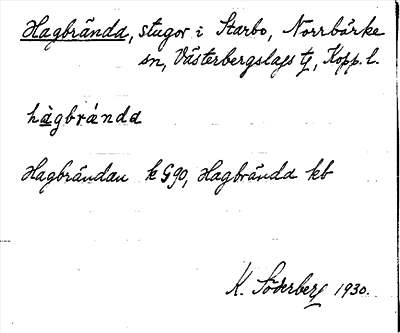 Hagbrända, stugor i Starbo, Norrbärke
sn, Västerbergslags tg, Kopp. l.
hàgbránda
Hagbrändan k G90, Hagbrända kb
K. Söderberg 1930.